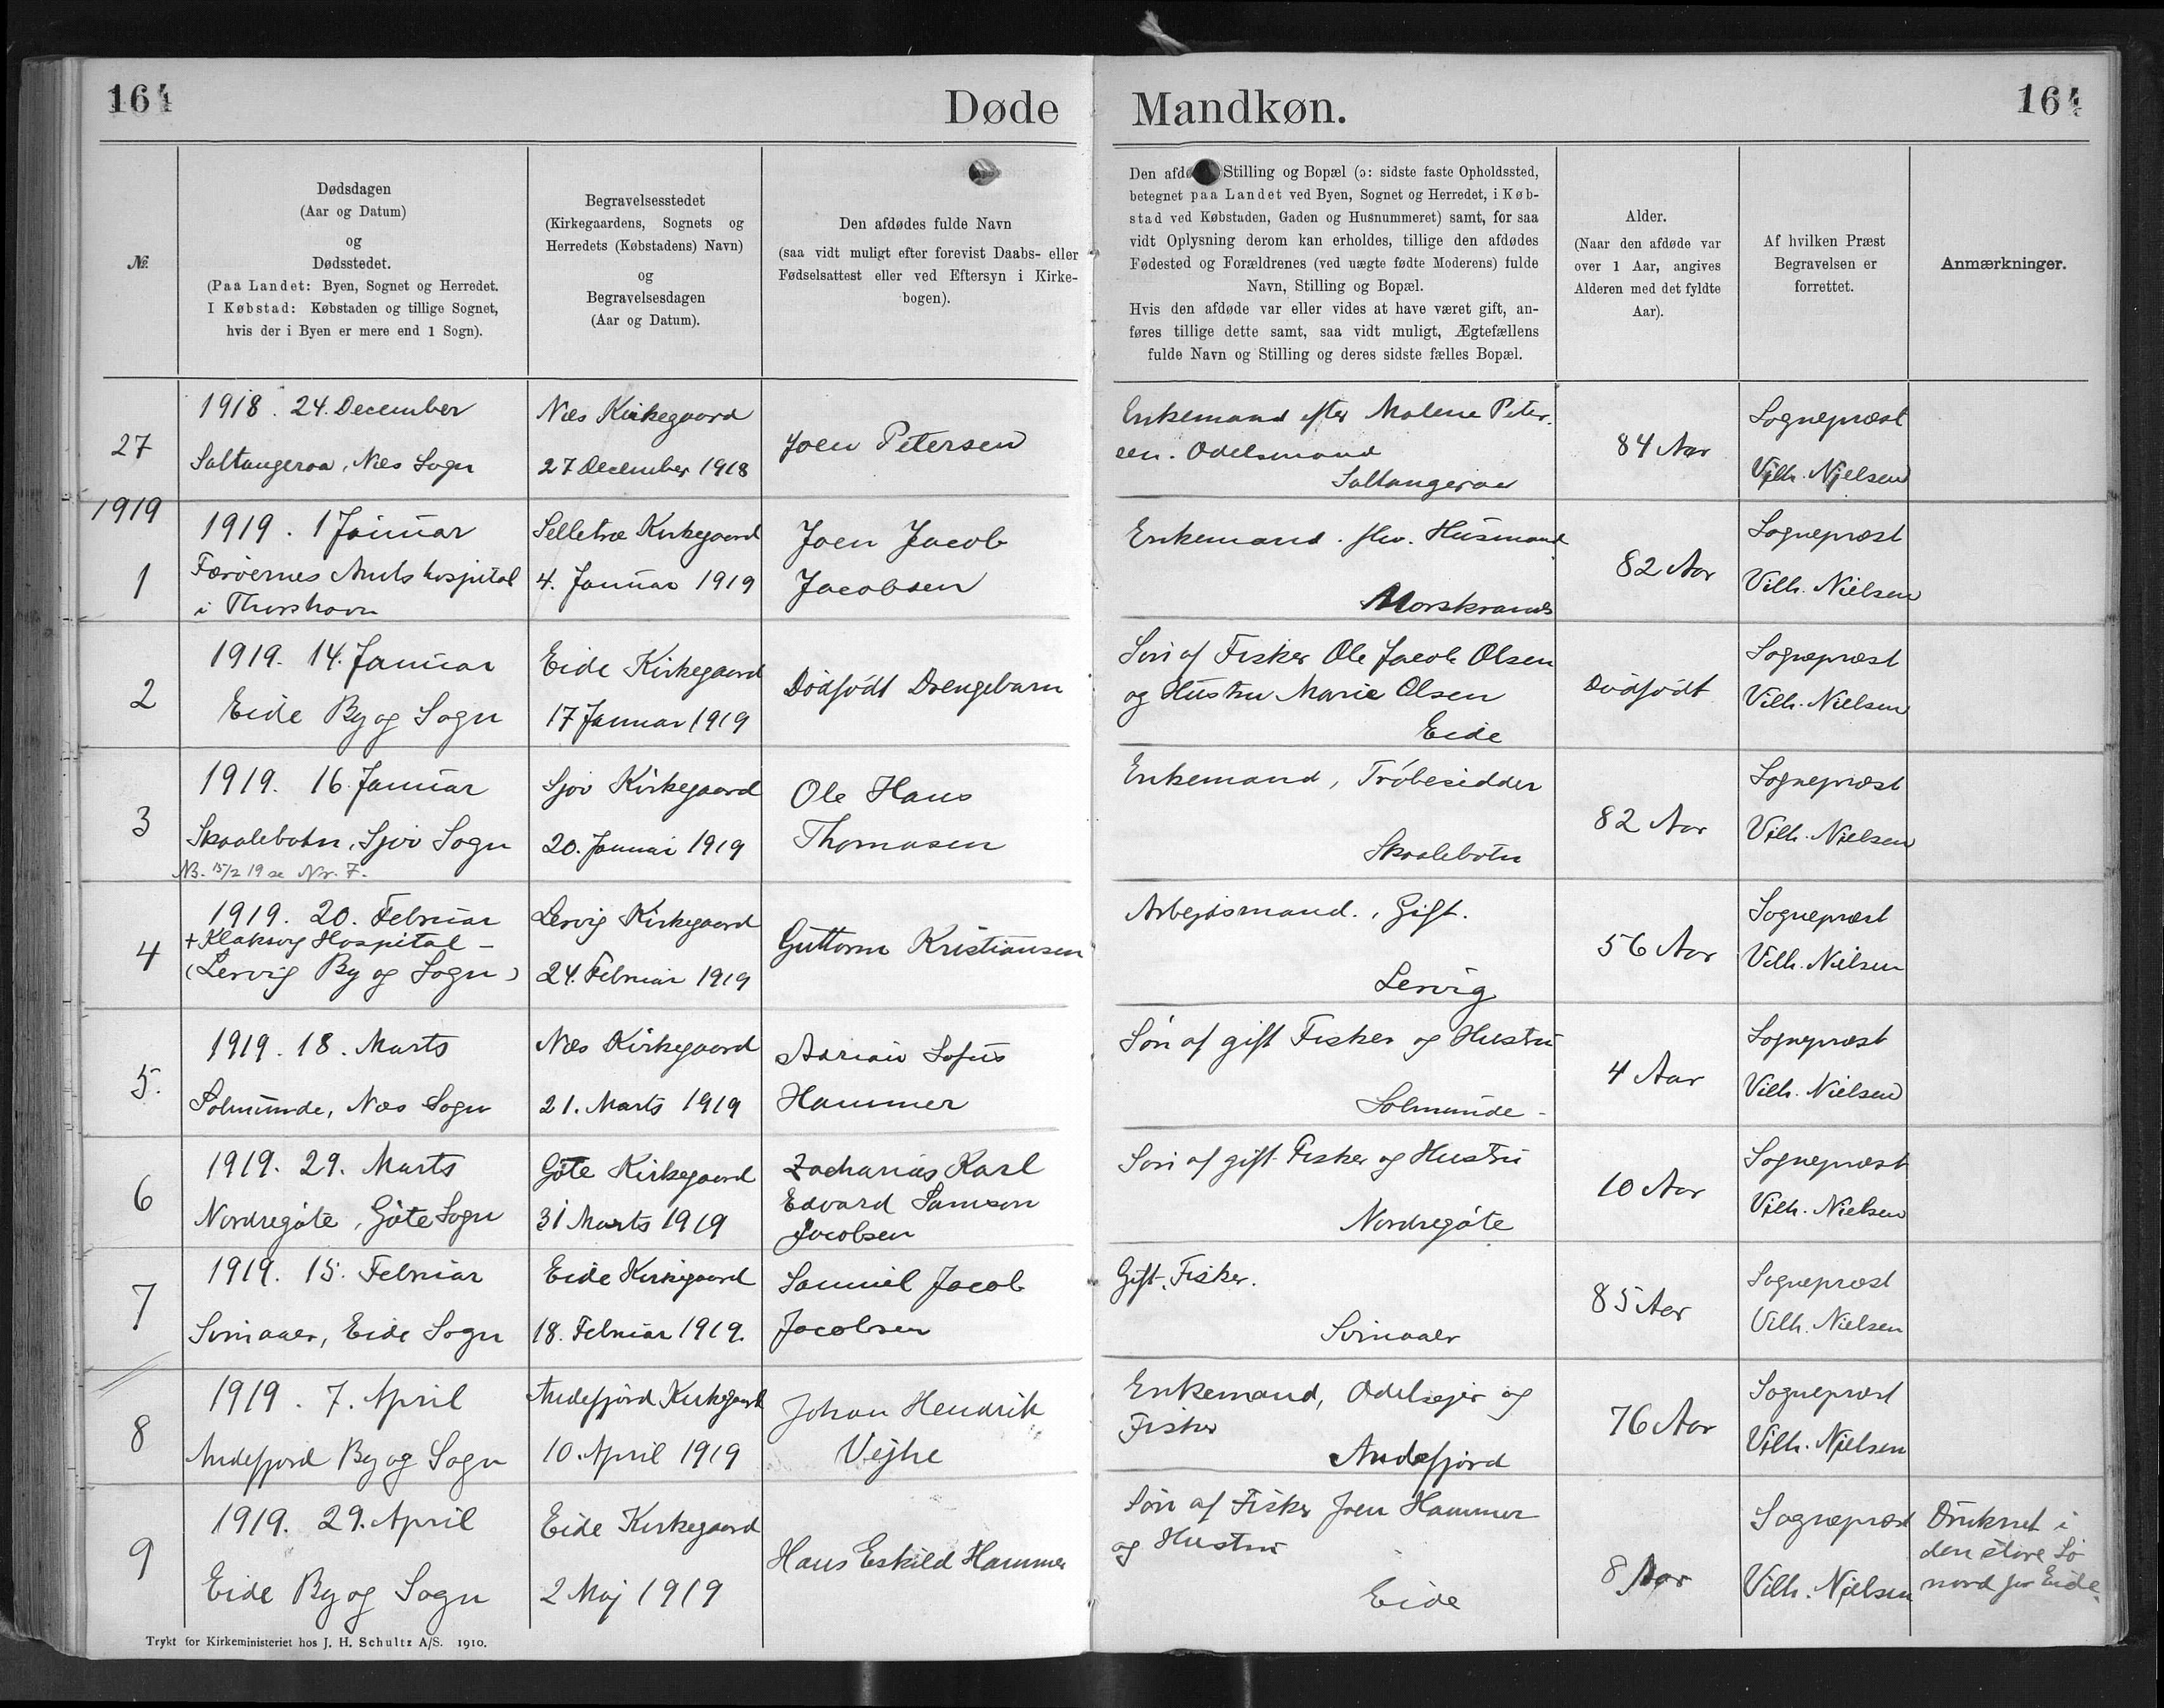 164
Døde Mandkøn.
164
№
Dødsdagen
(Aar og Datum)
og
Dødsstedet.
(Paa Landet: Byen, Sognet og Herredet.
I Købstad: Købstaden og tillige Sognet,
hvis der i Byen er mere end 1 Sogn).
Begravelsesstedet
(Kirkegaardens, Sognets og
Herredets (Købstadens) Navn)
og
Begravelsesdagen
(Aar og Datum).
Den afdødes fulde Navn
(saa vidt muligt efter forevist Daabs- eller
Fødselsattest eller ved Eftersyn i Kirke-
bogen).
Den Stilling og Bopæl (ɔ: sidste faste Opholdssted,
betegnet paa Landet ved Byen, Sognet og Herredet, i Køb-
stad ved Købstaden, Gaden og Husnummeret) samt, for saa
vidt Oplysning derom kan erholdes, tillige den afdødes
Fødested og Forældrenes (ved uægte fødte Moderens) fulde
Navn, Stilling og Bopæl.
Hvis den afdøde var eller vides at have været gift, an-
føres tillige dette samt, saa vidt muligt, Ægtefællens
fulde Navn og Stilling og deres sidste fælles Bopæl.
Alder.
(Naar den afdøde var
over 1 Aar, angives
Alderen med det fyldte
Aar).
Af hvilken Præst
Begravelsen er
forrettet.
Anmærkninger.
27
1918. 24. December
Saltangeraa, Næs Sogn
Næs Kirkegaard
27 December 1918
Joen Petersen
Enkemand efter Malene Peter.
sen. Odelsmand
Saltangeraa
84 Aar
Sognepræst
Vilh. Nielsen
1919
1
1919. 1 Januar
Færøernes Amtshospital
i Thorshavn
Selletræ Kirkegaard
4. Januar 1919
Joen Jacob
Jacobsen
Enkemand. fhv. Husmand
Morskranes
82 Aar
Sognepræst
Vilh. Nielsen
2
1919. 14. Januar
Eide By og Sogn
Eide Kirkegaard
17 Januar 1919
Dødfødt Drengebarn
Søn af Fisker Ole Jacob Olsen
og Hustru Marie Olsen
Eide
Dødfødt
Sognepræst
Vilh. Nielsen
3
1919. 16. Januar
Skaalebotn, Sjov Sogn
NB. 15/2 19 se Nr. 7.
Sjov Kirkegaard
20. Januar 1919
Ole Hans
Thomasen
Enkemand, Trøbesidder
Skaalebotn
82 Aar
Sognepræst
Vilh. Nielsen
4
1919. 20. Februar
+ Klaksvig Hospital –
(Lervig By og Sogn)
Lervig Kirkegaard
24. Februar 1919
Guttorm Kristiansen
Arbejdsmand., Gift.
Lervig
56 Aar
Sognepræst
Vilh. Nielsen
5.
1919. 18. Marts
Solmunde, Næs Sogn
Næs Kirkegaard
21. Marts 1919
Adrian Sofus
Hammer
Søn af gift Fisker og Hustru
Solmunde –
4 Aar
Sognepræst
Vilh. Nielsen
6
1919. 29. Marts
Nordregøte, Gøte Sogn
Gøte Kirkegaard
31 Marts 1919
Zacharias Karl
Edvard Samson
Jacobsen
Søn af gift Fisker og Hustru
Nordregøte
10 Aar
Sognepræst
Vilh. Nielsen
7
1919. 15. Februar
Svinaaer, Eide Sogn
Eide Kirkegaard
18. Februar 1919.
Samuel Jacob
Jacobsen
Gift. Fisker.
Svinaaer
85 Aar
Sognepræst
Vilh. Nielsen
8
1919. 7. April
Andefjord By og Sogn
Andefjord Kirkegaard
10. April 1919
Johan Hendrik
Vejhe
Enkemand, Odelsejer og
Fisker
Andefjord
76 Aar
Sognepræst
Vilh. Nielsen
9
1919. 29. April
Eide By og Sogn
Eide Kirkegaard
2 Maj 1919
Hans Eskild Hammer
Søn af Fisker Joen Hammer
og Hustru
Eide
8 Aar
Sognepræst
Vilh. Nielsen
Druknet i
den store Sø
nord for Eide.
Trykt for Kirkeministeriet hos J. H. Schultz A/S. 1910.